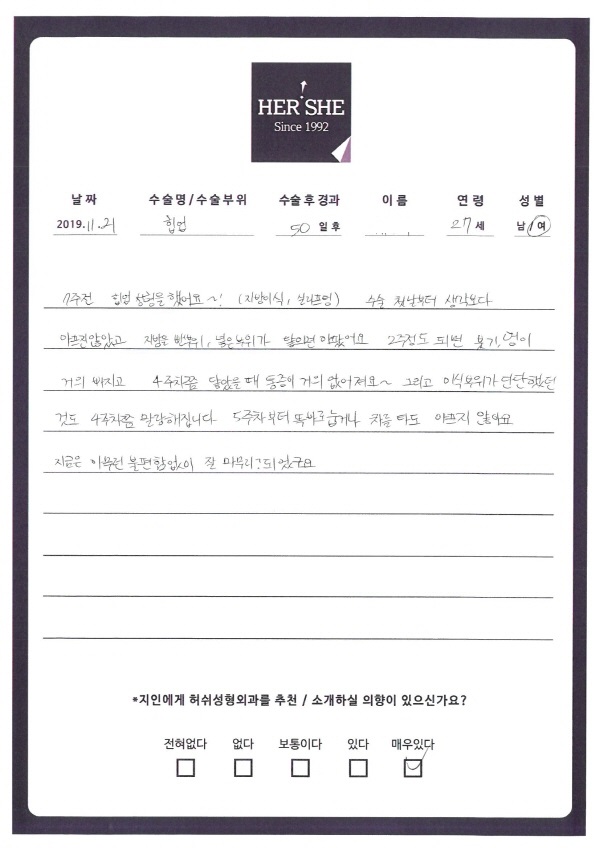 HER SHE
Since 1992
날 짜 수술명/수술부위 수술후경과 이 름 연 령 성 별
2019.11.21 힙업 50 일 후 27 세 남/여
7주전 힙업 성형을 했어요~! (지방이식, 실리프팅) 수술 첫날부터 생각보다
아프진않았고 지방을 뺀부위, 넣은부위가 닿으면 아팠어요 2주정도 되면 붓기, 멍이
거의 빠지고 4주차쯤 닿았을 때 통증이 거의 없어져요~ 그리고 이식부위가 단단했던
것도 4주차쯤 말랑해집니다 5주차부터 똑바로 눕거나 차를 타도 아프지 않아요
지금은 아무런 불편함없이 잘 마무리 되었구요
*지인에게 허쉬성형외과를 추천 / 소개하실 의향이 있으신가요?
전혀없다 없다 보통이다 있다 매우있다